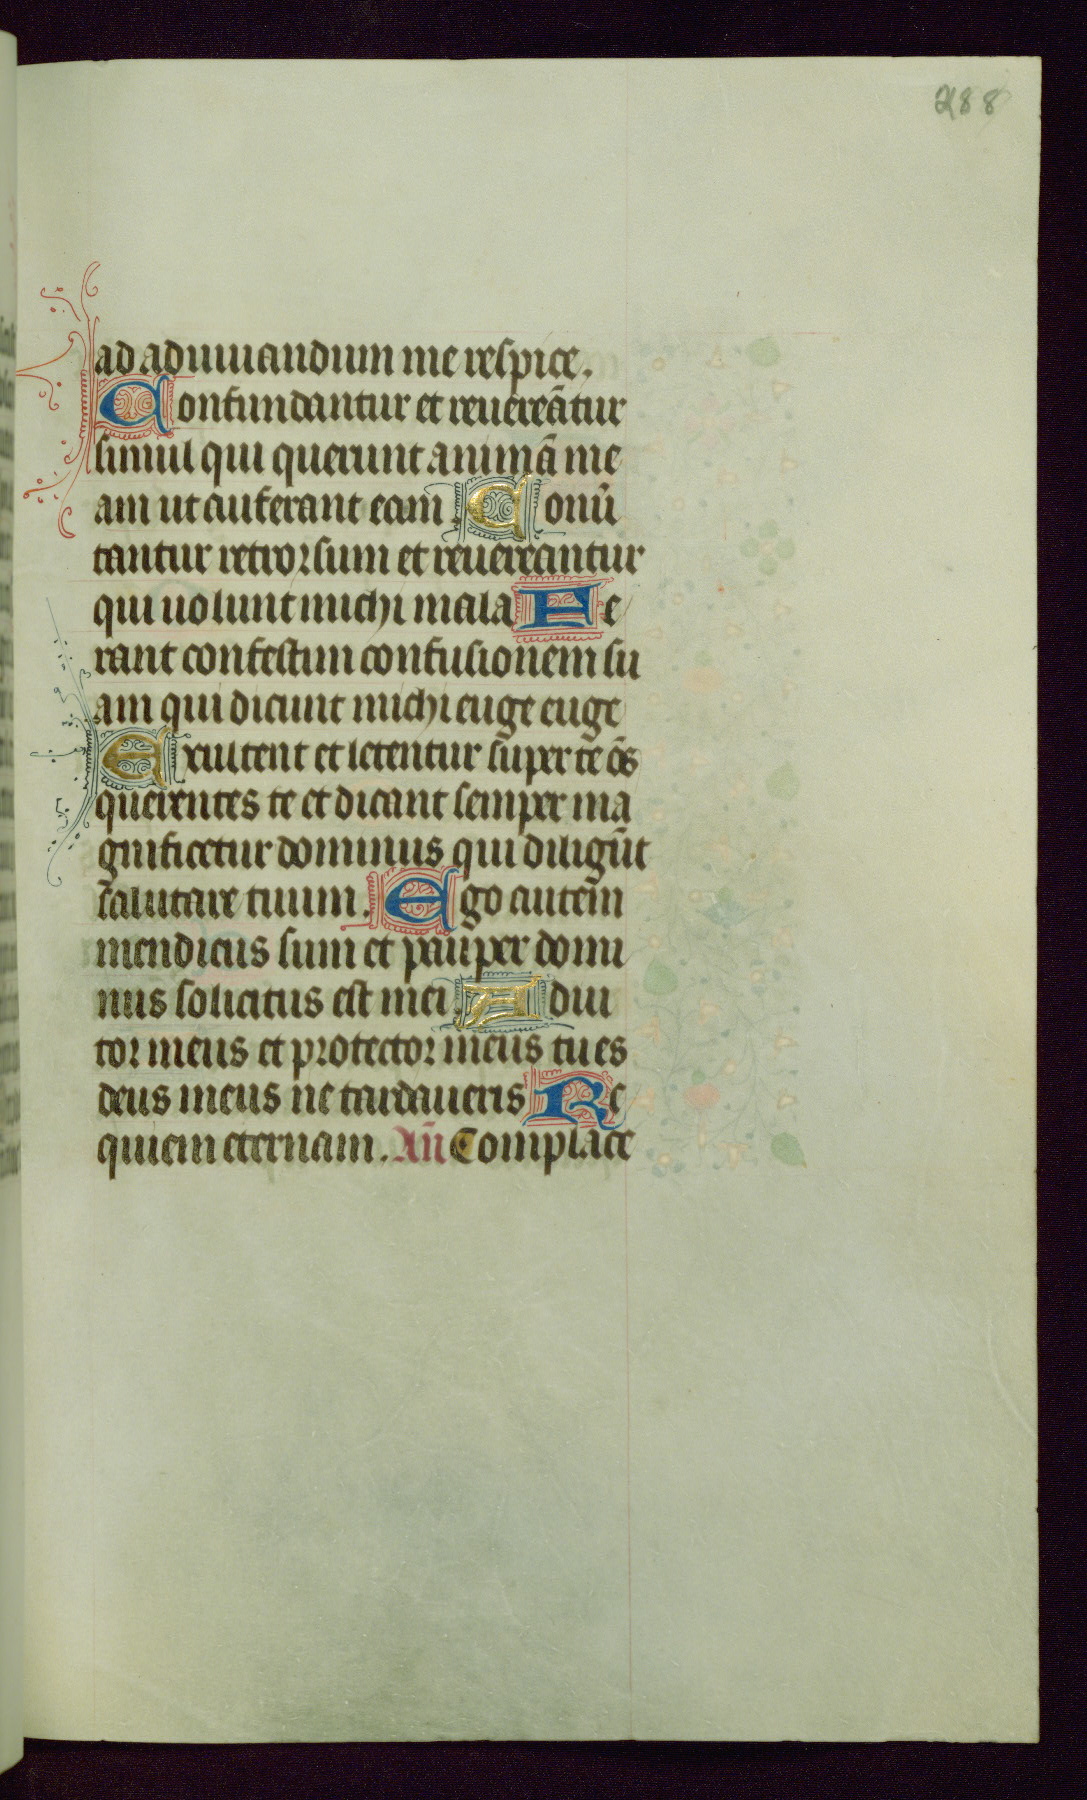 288
ad adiuuandum me respice.
Confundantur et reuereãtur
simul qui querunt animã me
am ut auferant eam. Conũ
tantur retrorsum et reuereantur
qui uolunt michi mala Fe
rant confestim confusionem su
am qui dicunt michi euge euge
Exultent et letentur super te õs
querentes te et dicant semper ma
gnificetur dominus qui diligũt
salutare tuum. Ego autem
mendicus sum et pauper domi
nus solicitus est mei. Adiu
tor meus et protector meus tu es
deus meus ne tardaueris Re
quiem eternam. Añ Complace